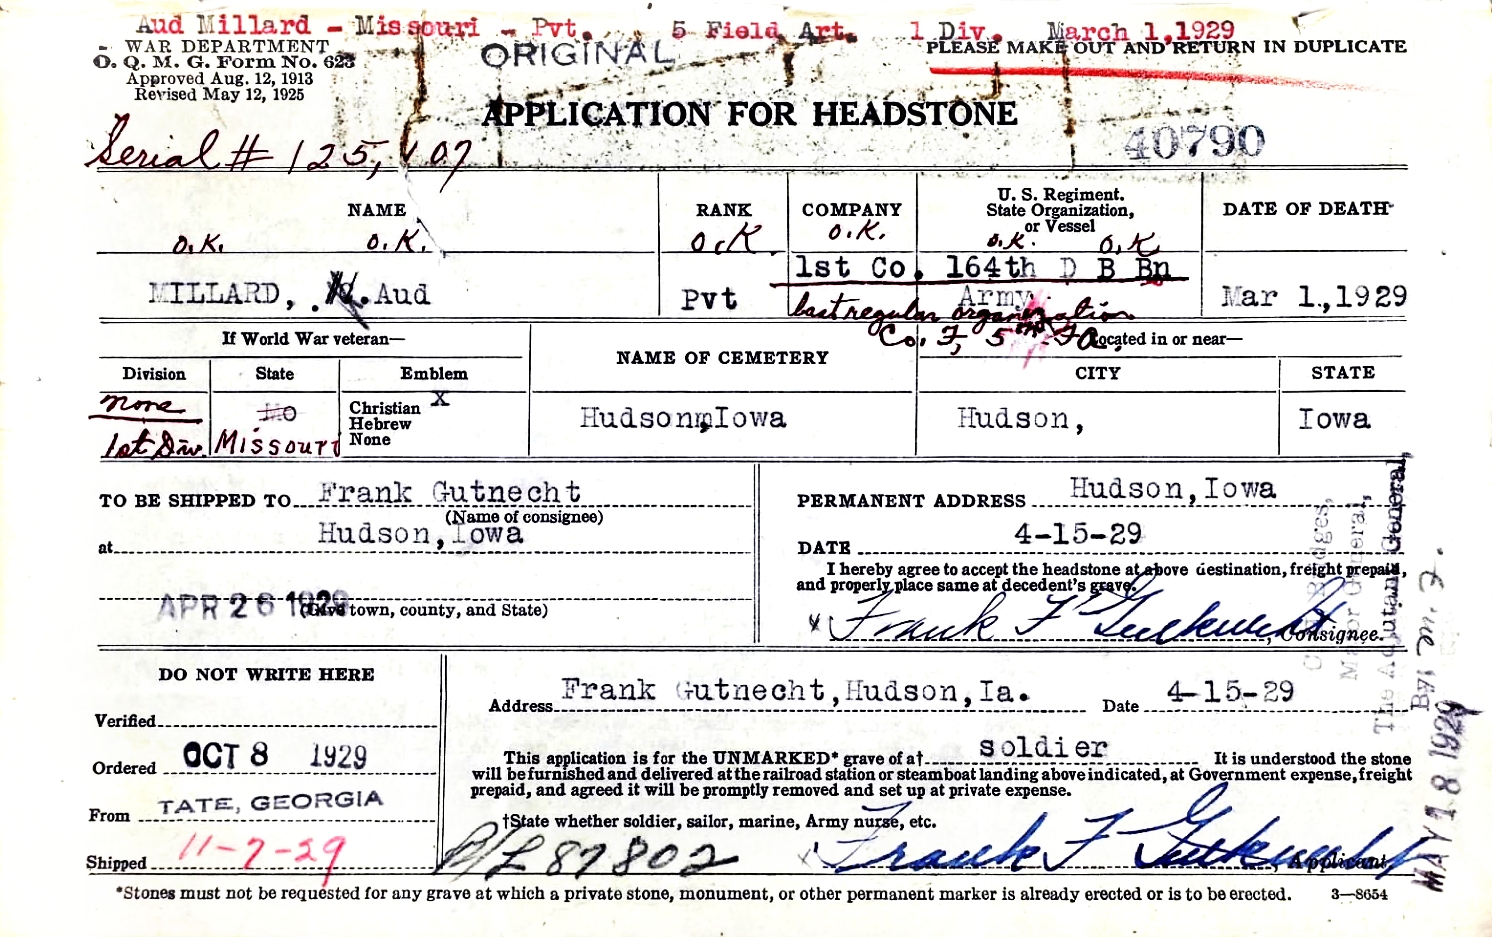 Aud Millard - Missouri - Pvt. 5 Field Art. 1 Div. March 1,1929
WAR DEPARTMENT
O. Q. M. G. Form No. 623
Approved Aug. 12, 1913
Revised May 12, 1925
ORIGINAL
PLEASE MAKE OUT AND RETURN IN DUPLICATE
APPLICATION FOR HEADSTONE
Serial # 125,107
40790
NAME
RANK
COMPANY
U. S. Regiment.
State Organization,
or Vessel
DATE OF DEATH
O.K. O.K. O.K O.K. O.K. O.K
MILLARD, . Aud
Pvt
1st Co. 164th D B Bn
Army
Mar 1.,1929
last regular organization
Co. F, 5th FA.
If World War veteran—
Division
State
Emblem
NAME OF CEMETERY
Located in or near—
CITY
STATE
none
1st Div.
MO
Missouri
Christian X
Hebrew
None
Hudson,Iowa
Hudson,
Iowa
TO BE SHIPPED TO Frank Gutnecht
(Name of consignee)
at Hudson,Iowa
APR 26 1929
(Give town, county, and State)
PERMANENT ADDRESS Hudson,Iowa
DATE 4-15-29
I hereby agree to accept the headstone at above destination, freight prepaid,
and properly place same at decedent's grave.
x Frank F Gutknecht, Consignee.
C. H. Bridges,
Major General,
The Adjutant General,
By: m. F.
MAY 18 1929
DO NOT WRITE HERE
Verified
Ordered OCT 8 1929
From TATE, GEORGIA
Shipped 11-7-29
Address Frank Gutnecht,Hudson,Ia. Date 4-15-29
This application is for the UNMARKED* grave of a† soldier It is understood the stone
will be furnished and delivered at the railroad station or steamboat landing above indicated, at Government expense, freight
prepaid, and agreed it will be promptly removed and set up at private expense.
†State whether soldier, sailor, marine, Army nurse, etc.
B/L 87802
x Frank F Gutknecht, Applicant.
*Stones must not be requested for any grave at which a private stone, monument, or other permanent marker is already erected or is to be erected. 3—8654